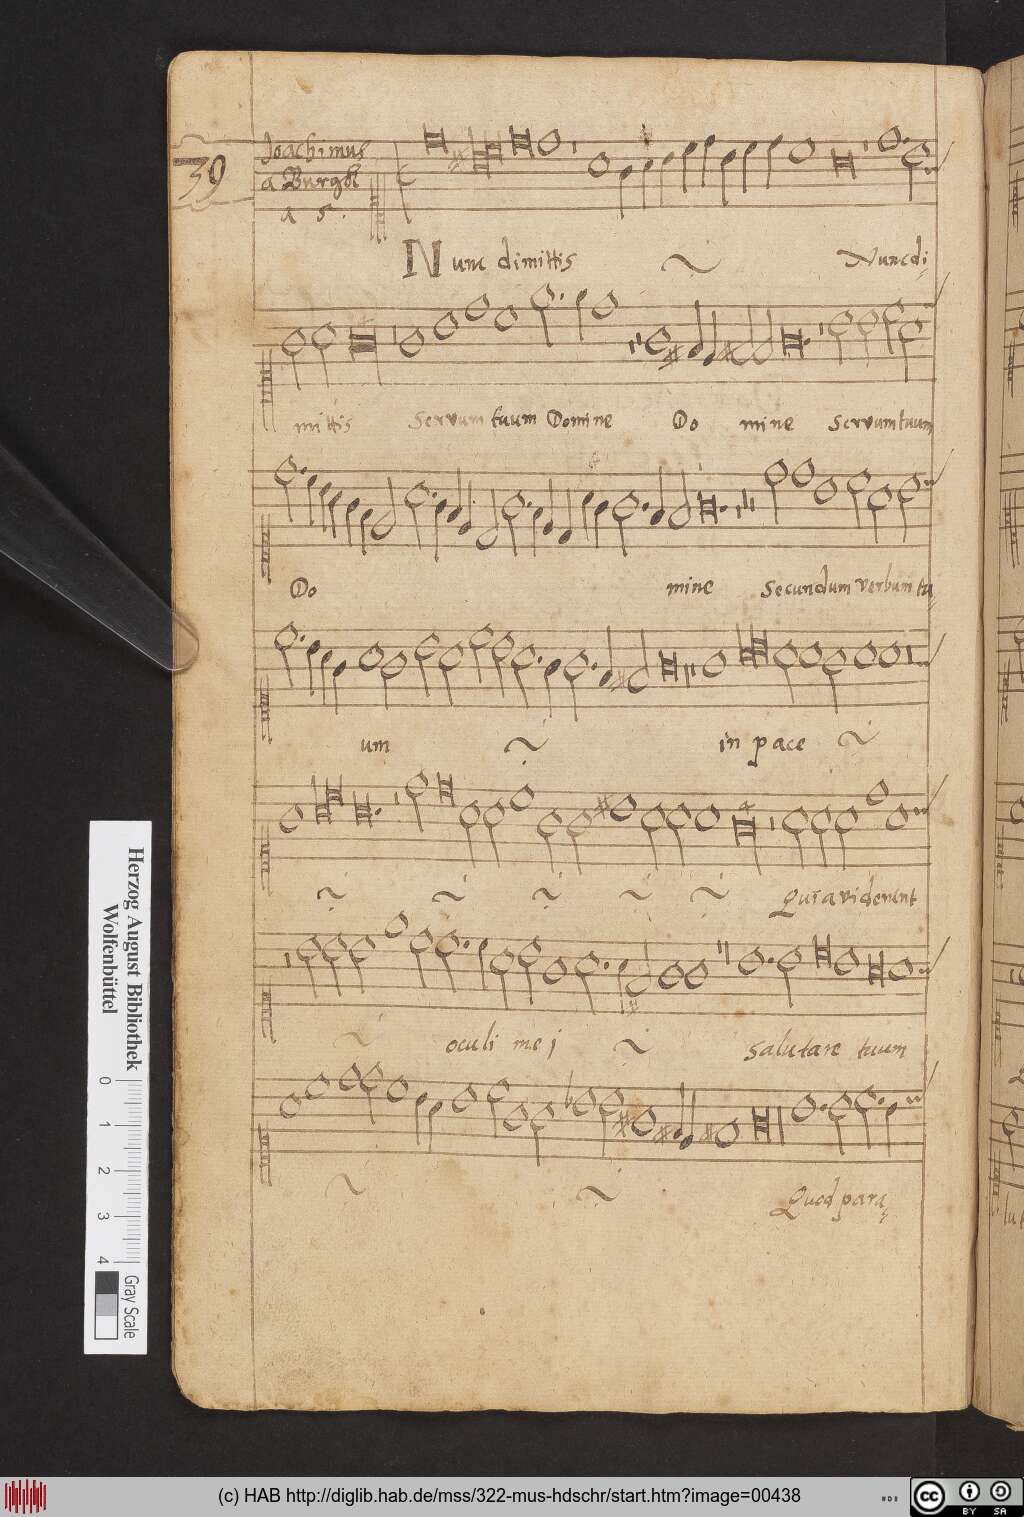 39
Joachimus
a Burgk
a 5.
Nunc dimittis Nunc di
mittis Servum tuum Domine Do mine Servum tuum
Do mine Secundum verbum tu
um in pace
Quia viderunt
oculi mei Salutare tuum
Quod para
Herzog August Bibliothek
Wolfenbüttel
0 1 2 3 4
Gray Scale
(c) HAB http://diglib.hab.de/mss/322-mus-hdschr/start.htm?image=00438
cc BY SA